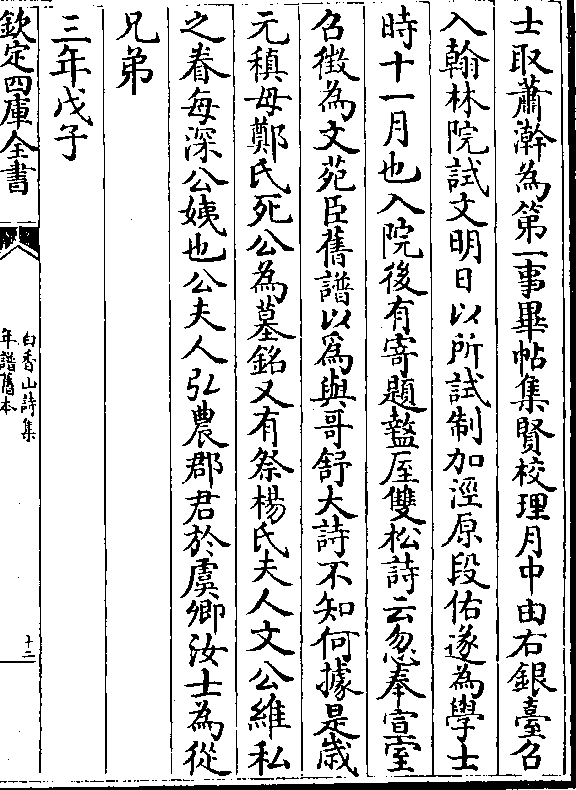 士取蕭澣為第一事畢帖集賢校理月中由右銀臺召
入翰林院試文明日以所試制加涇原段佑遂為學士
時十一月也入院後有寄題盩厔雙松詩云忽奉宣室
召徴為文苑臣舊譜以為與哥舒大詩不知何據是歲
元稹母鄭氏死公為墓銘又有祭楊氏夫人文公維私
之眷每深公姨也公夫人弘農郡君於虞卿汝士為從
兄弟
三年戊子
欽定四庫全書
白香山詩集
年譜舊本
十二